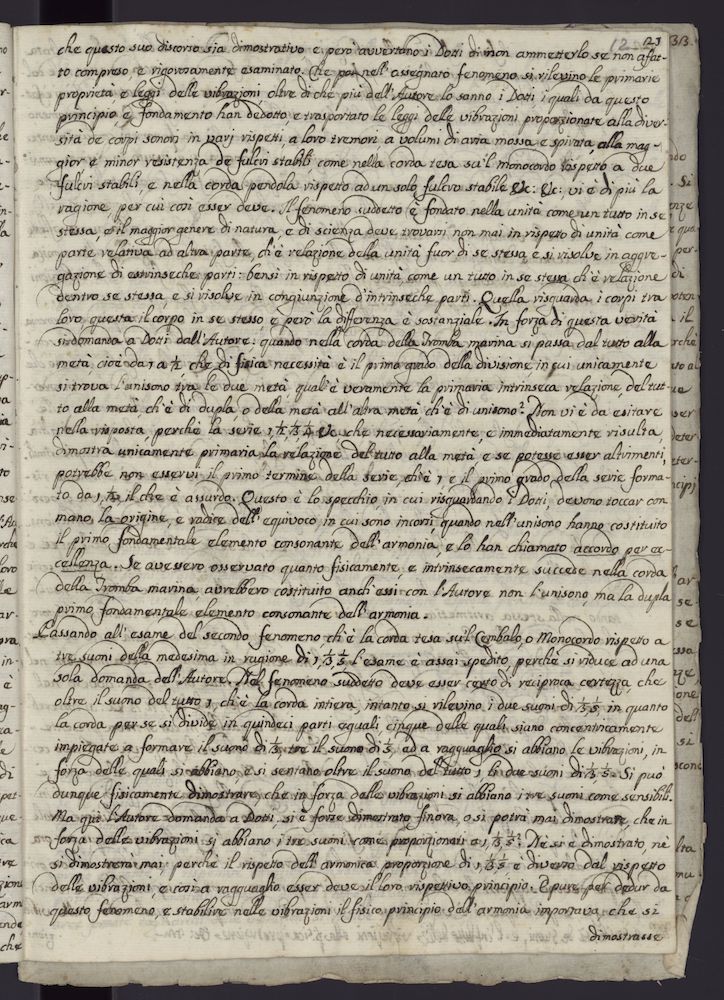 12 123
che questo suo discorso sia dimostrativo e però avvertano i Dotti di non ammetterlo se non affat-
to compreso e rigorosamente esaminato. Che poi nell'assegnato fenomeno si rilevino le primarie
proprietà e leggi delle vibrazioni, oltre di che più dell'Autore lo sanno i Dotti i quali da questo
principio e fondamento han dedotto e trasportato le leggi delle vibrazioni proporzionate alla diver-
sità de corpi sonori in varj rispetti a loro tremori a volumi di aria mossa e spirata alla mag-
gior e minor resistenza de fulcri stabili come nella corda tesa sù'l monocordo rispetto a due
fulcri stabili, e nella corda pendola rispetto ad un solo fulcro stabile &c: &c: vi è di più la
ragione per cui così esser deve. Il fenomeno suddetto è fondato nella unità come un tutto in se
stessa e il maggior genere di natura e di scienza deve trovarsi non mai in rispetto di unità come
parte relativa ad altra parte, ch'è relazione della unità fuor di se stessa e si risolve in aggre-
gazione di estrinseche parti: bensì in rispetto di unità come un tutto in se stessa ch'è relazione
dentro se stessa e si risolve in congiunzione d'intrinseche parti. Quella risguarda i corpi tra
loro, questa il corpo in se stesso e però la differenza è sostanziale. In forza di questa verità
si domanda a Dotti dall'Autore: quando nella corda della Tromba marina si passa dal tutto alla
metà cioè da 1 a ½ che di fisica necessità è il primo grado della divisione in cui unicamente
si trova l'unisono tra le due metà, qual'è veramente la primaria intrinseca relazione, del tut-
to alla metà ch'è di dupla o della metà all'altra metà ch'è di unisono? Non vi è da esitare
nella risposta, perchè la serie 1 ½ ⅓ ¼ &c che necessariamente, e immediatamente risulta,
dimostra unicamente primaria la relazione del tutto alla metà e se potesse esser altrimenti,
potrebbe non esservi il primo termine della serie, ch'è 1 e il primo grado della serie forma-
to da 1, ½, il che è assurdo. Questo è lo specchio in cui risguardando i Dotti, devono toccar con
mano, la origine, e radice dell'equivoco in cui sono incorsi quando nell'unisono hanno costituito
il primo fondamentale elemento consonante dell'armonia, e lo han chiamato accordo per ec-
cellenza. Se avessero osservato quanto fisicamente, e intrinsecamente succede nella corda
della Tromba marina avrebbero costituito anch'essi con l'Autore non l'unisono, ma la dupla
primo fondamentale elemento consonante dell'armonia.
Passando all'esame del secondo fenomeno ch'è la corda tesa sù'l Cembalo, o Monocordo rispetto a
tre suoni della medesima in ragione di 1, ⅓, ⅕ l'esame è assai spedito, perchè si riduce ad una
sola domanda dell'Autore. Nel fenomeno suddetto deve esser certo di reciproca certezza, che
oltre il suono del tutto 1 ch'è la corda intiera, intanto si rilevino i due suoni di ⅓ ⅕, in quanto
la corda per se si divide in quindeci parti eguali, cinque delle quali siano concentricamente
impiegate a formare il suono di ⅓, tre il suono di ⅕, ad a ragguaglio si abbiano le vibrazioni, in
forza delle quali si abbiano, e si sentano oltre il suono del tutto 1, li due suoni di ⅓ ⅕. Si può
dunque fisicamente dimostrare che in forza delle vibrazioni si abbiano i tre suoni come sensibili.
Ma quì l'Autore domanda a Dotti, si è forse dimostrato finora, o si potrà mai dimostrare, che in
forza delle vibrazioni si abbiano i tre suoni come proporzionati a 1, ⅓ ⅕? Nè si è dimostrato, nè
si dimostrerà mai, perchè il rispetto dell'armonica proporzione di 1, ⅓ ⅕ è diverso dal rispetto
delle vibrazioni, e così a ragguaglio esser deve il loro rispettivo principio. Eppure per dedur da
questo fenomeno, e stabilire nelle vibrazioni il fisico principio dell'armonia importava, che si
dimostrasse